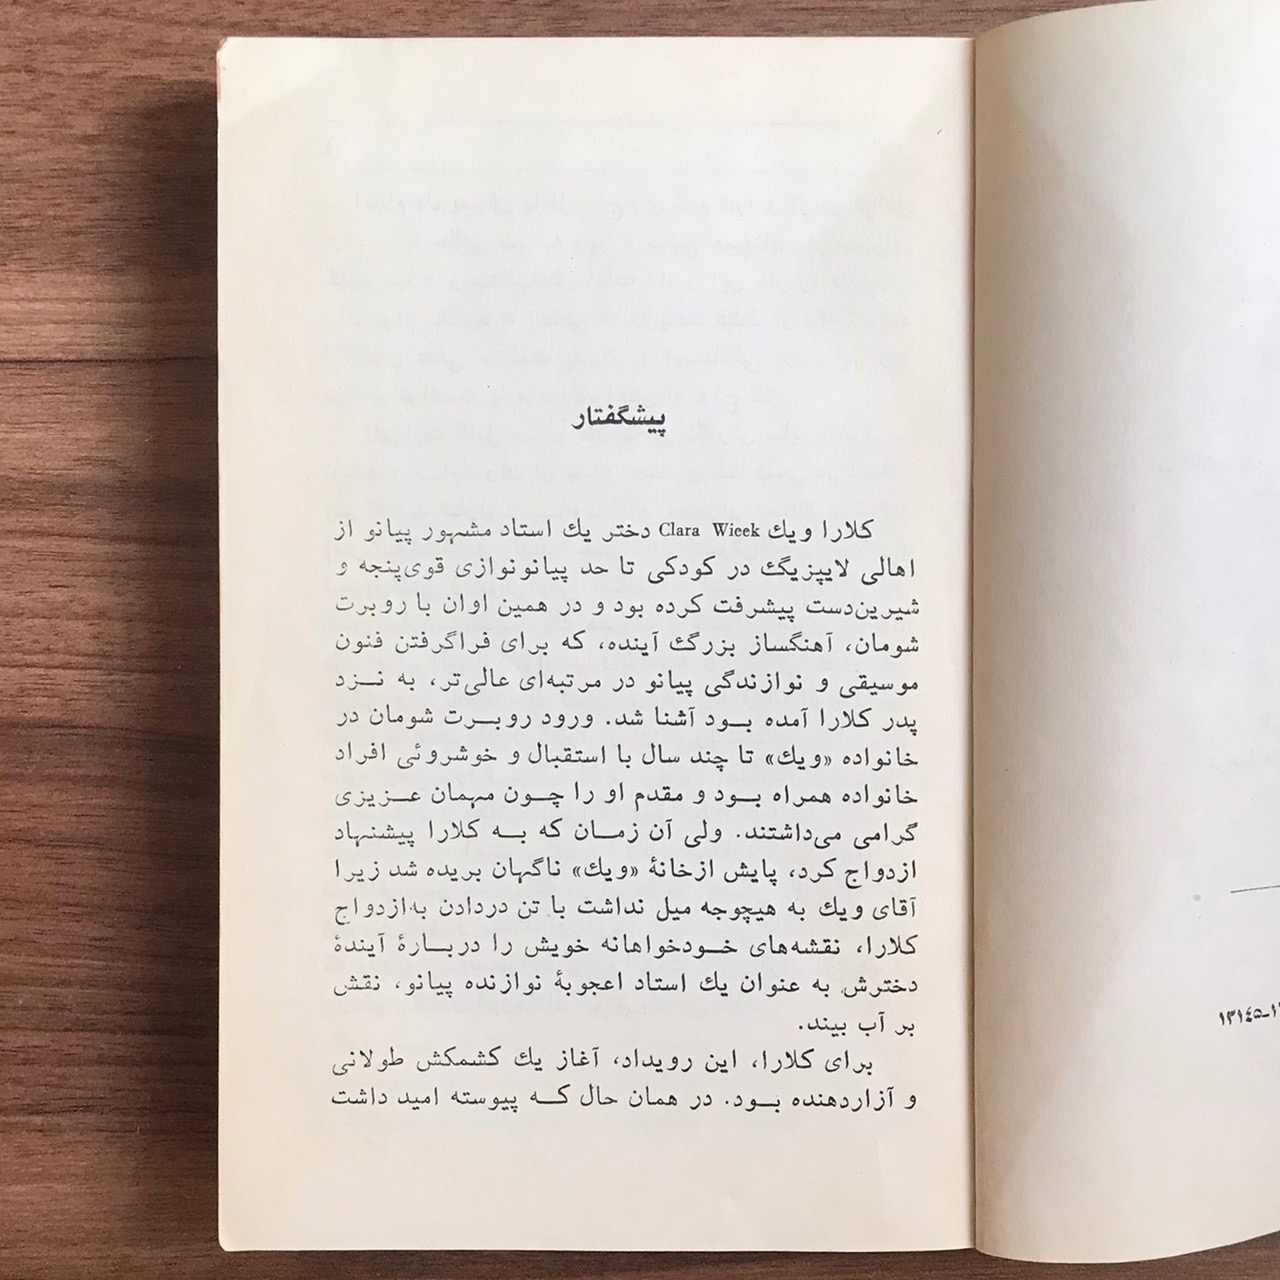 پیشگفتار
کلارا ویك Clara Wieek دختر یك استاد مشهور پیانو از
اهالی لایپزیگ در کودکی تا حد پیانونوازی قوی‌پنجه و
شیرین‌دست پیشرفت کرده بود و در همین اوان با روبرت
شومان، آهنگساز بزرگ آینده، که برای فراگرفتن فنون
موسیقی و نوازندگی پیانو در مرتبه‌ای عالی‌تر، به نزد
پدر کلارا آمده بود آشنا شد. ورود روبرت شومان در
خانواده «ویك» تا چند سال با استقبال و خوشروئی افراد
خانواده همراه بود و مقدم او را چون مهمان عزیزی
گرامی می‌داشتند. ولی آن زمان که به کلارا پیشنهاد
ازدواج کرد، پایش ازخانهٔ «ویك» ناگهان بریده شد زیرا
آقای ویك به هیچوجه میل نداشت با تن دردادن به‌ازدواج
کلارا، نقشه‌های خودخواهانه خویش را دربارهٔ آیندهٔ
دخترش به عنوان یك استاد اعجوبهٔ نوازنده پیانو، نقش
بر آب بیند.
برای کلارا، این رویداد، آغاز یك کشمکش طولانی
و آزاردهنده بود. در همان حال که پیوسته امید داشت